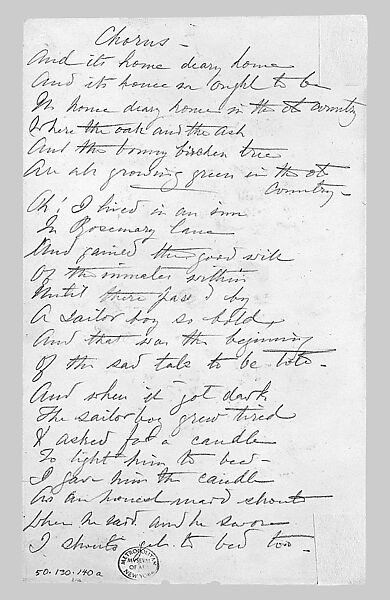 Chorus -
And its home deary home
And its home m ought to be
In home deary home in the ol country
Where the oak and the ash
And the bonny birchen tree
Are all growing green in the ol
Country -
Oh! I lived in an inn
In Rosemary lane
And gained the good will
Of the inmates within
Until there pass'd by
A Sailor boy so bold,
And that was the beginning
Of the sad tale to be told -
And when it got dark
The sailor boy grew tired
& asked for a candle
To light him to bed -
I gave him the candle
As an honest maid should
When he said and he swore
I should get to bed too -
METROPOLITAN
MUSEUM
OF ART
NEW YORK
50.130.140a